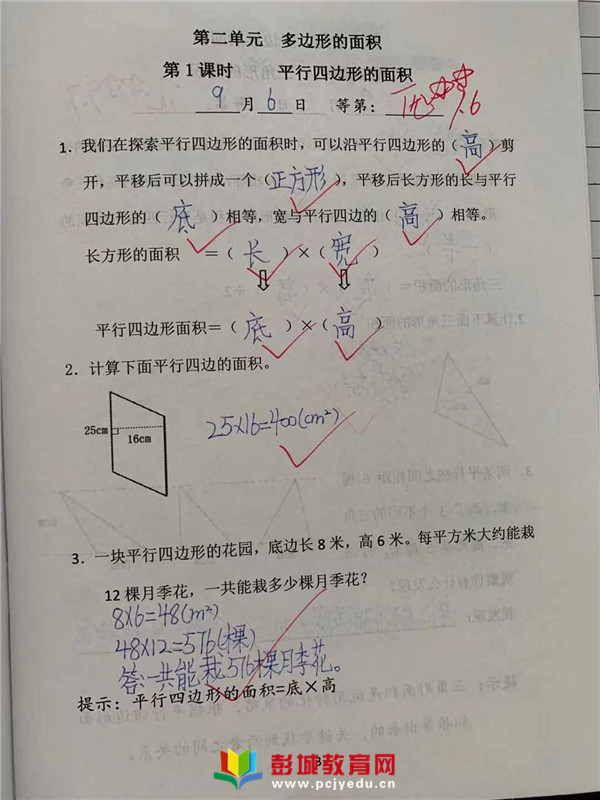 第二单元 多边形的面积
第1课时 平行四边形的面积
9月6日 等第：优 9.6
1. 我们在探索平行四边形的面积时，可以沿平行四边形的（高）剪
开，平移后可以拼成一个（正方形），平移后长方形的长与平行
四边形的（底）相等，宽与平行四边的（高）相等。
长方形的面积 ＝（长）×（宽）
平行四边形面积＝（底）×（高）
2. 计算下面平行四边的面积。
25cm 16cm 25×16=400(cm²)
3. 一块平行四边形的花园，底边长8米，高6米。每平方米大约能栽
12棵月季花，一共能栽多少棵月季花？
8×6=48(m²)
48×12=576(棵)
答:一共能栽576棵月季花。
提示：平行四边形的面积=底×高
彭城教育网
www.pcjyedu.cn